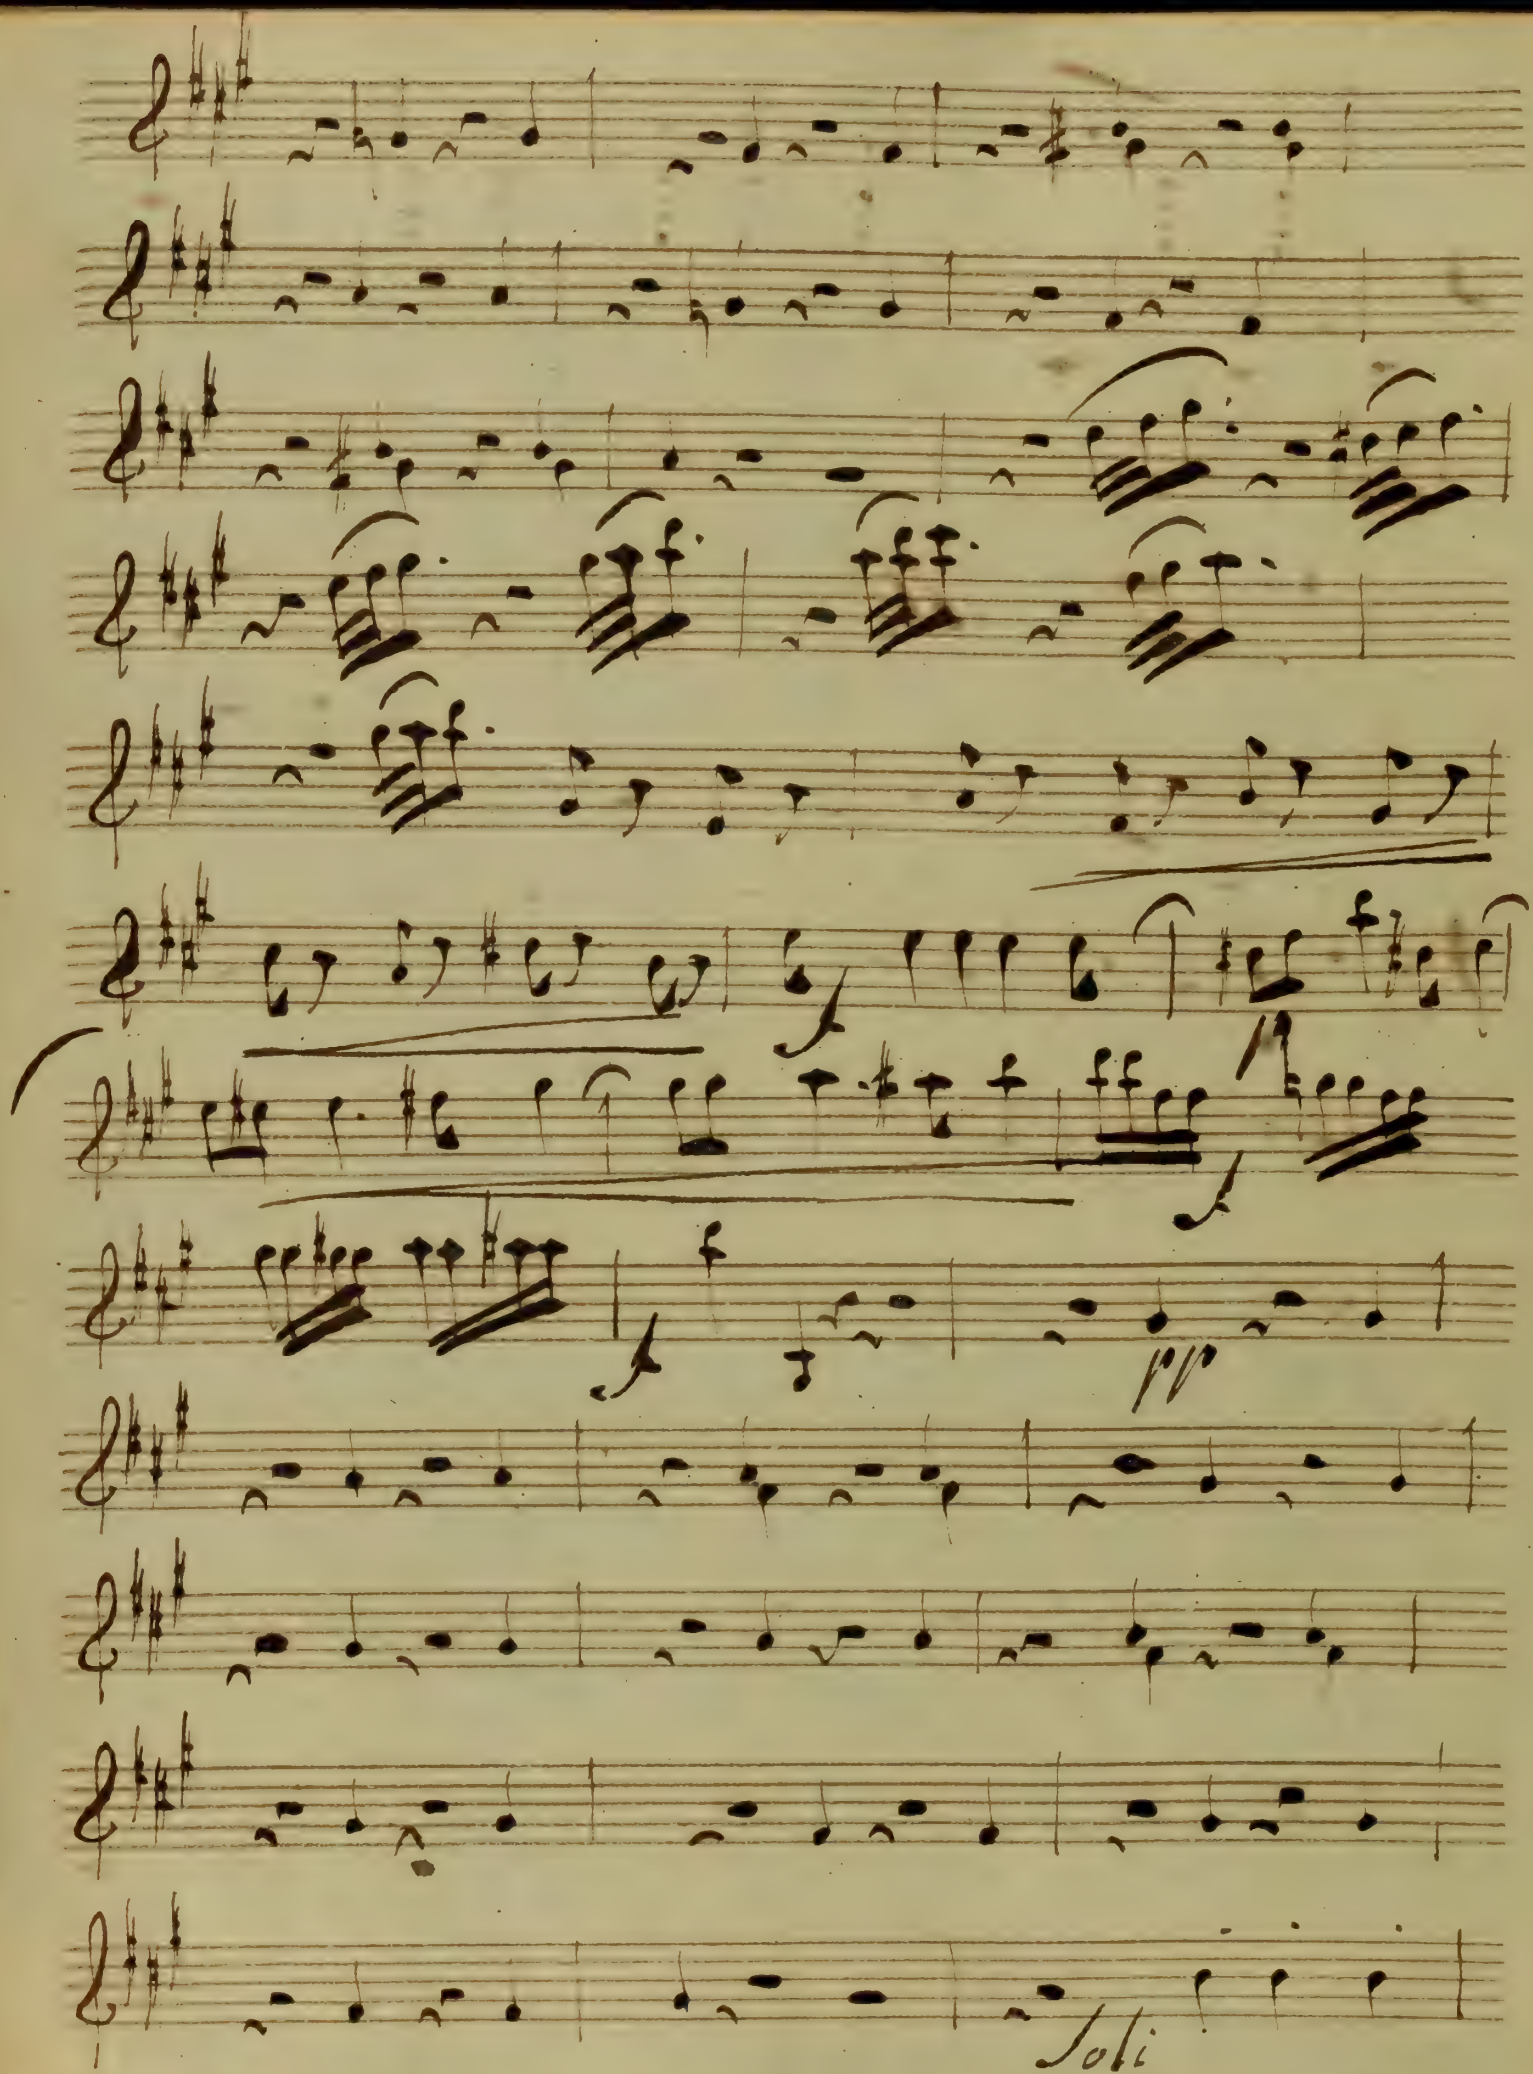 f
p
f
f
pp
Soli